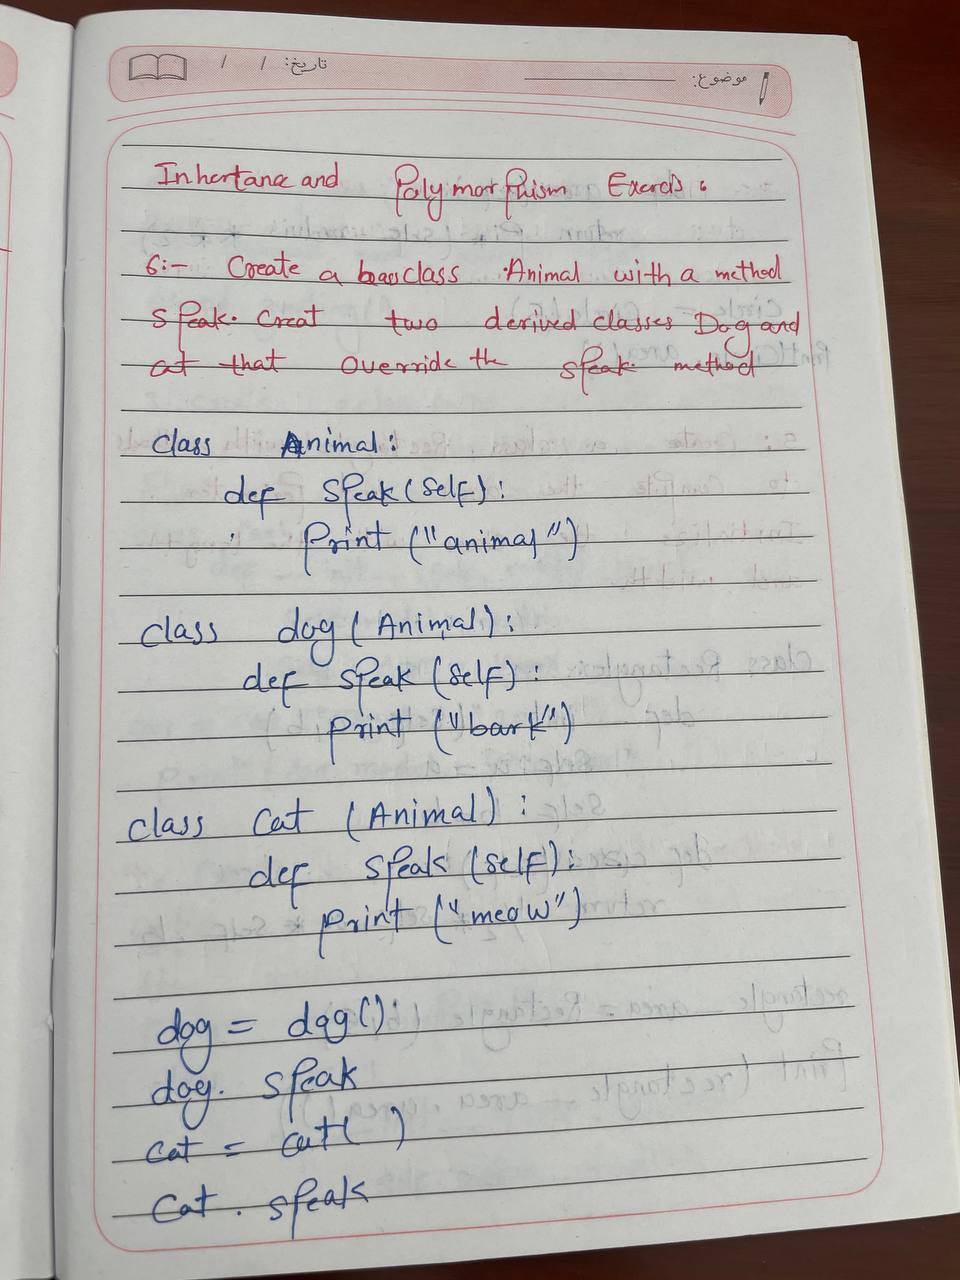 موضوع: تاريخ: / /
Inhertance and Polymorphism Exercis:
6:- Create a bass class Animal with a method
speak. Creat two derived classes Dog and
cat that override the speak. method
class Animal:
def speak(self):
print ("animal")
class dog(Animal):
def speak (self):
print ("bark")
class cat (Animal):
def speak (self):
print ("meow")
dog = dog():
dog. speak
cat = cat( )
cat. speak